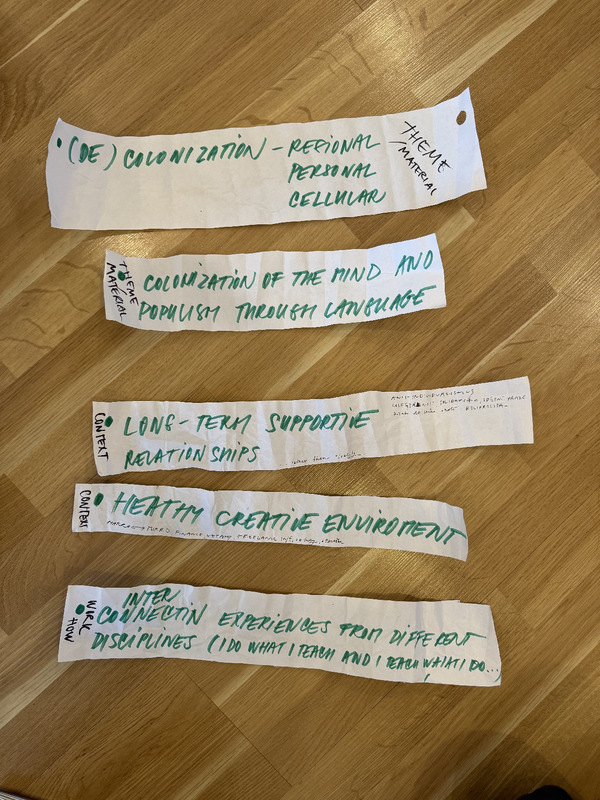 • (DE) COLONIZATION – REGIONAL
PERSONAL
CELLULAR
THEME
/MATERIAL
THEME
MATERIAL
• COLONIZATION OF THE MIND AND
POPULISM THROUGH LANGUAGE
CONTEXT
• LONG-TERM SUPPORTIVE
RELATIONSHIPS
CONTEXT
• HEATHY CREATIVE ENVIROMENT
WORK
HOW
INTER
• CONNECTIN EXPERIENCES FROM DIFFERENT
DISCIPLINES (I DO WHAT I TEACH AND I TEACH WHAT I DO...)